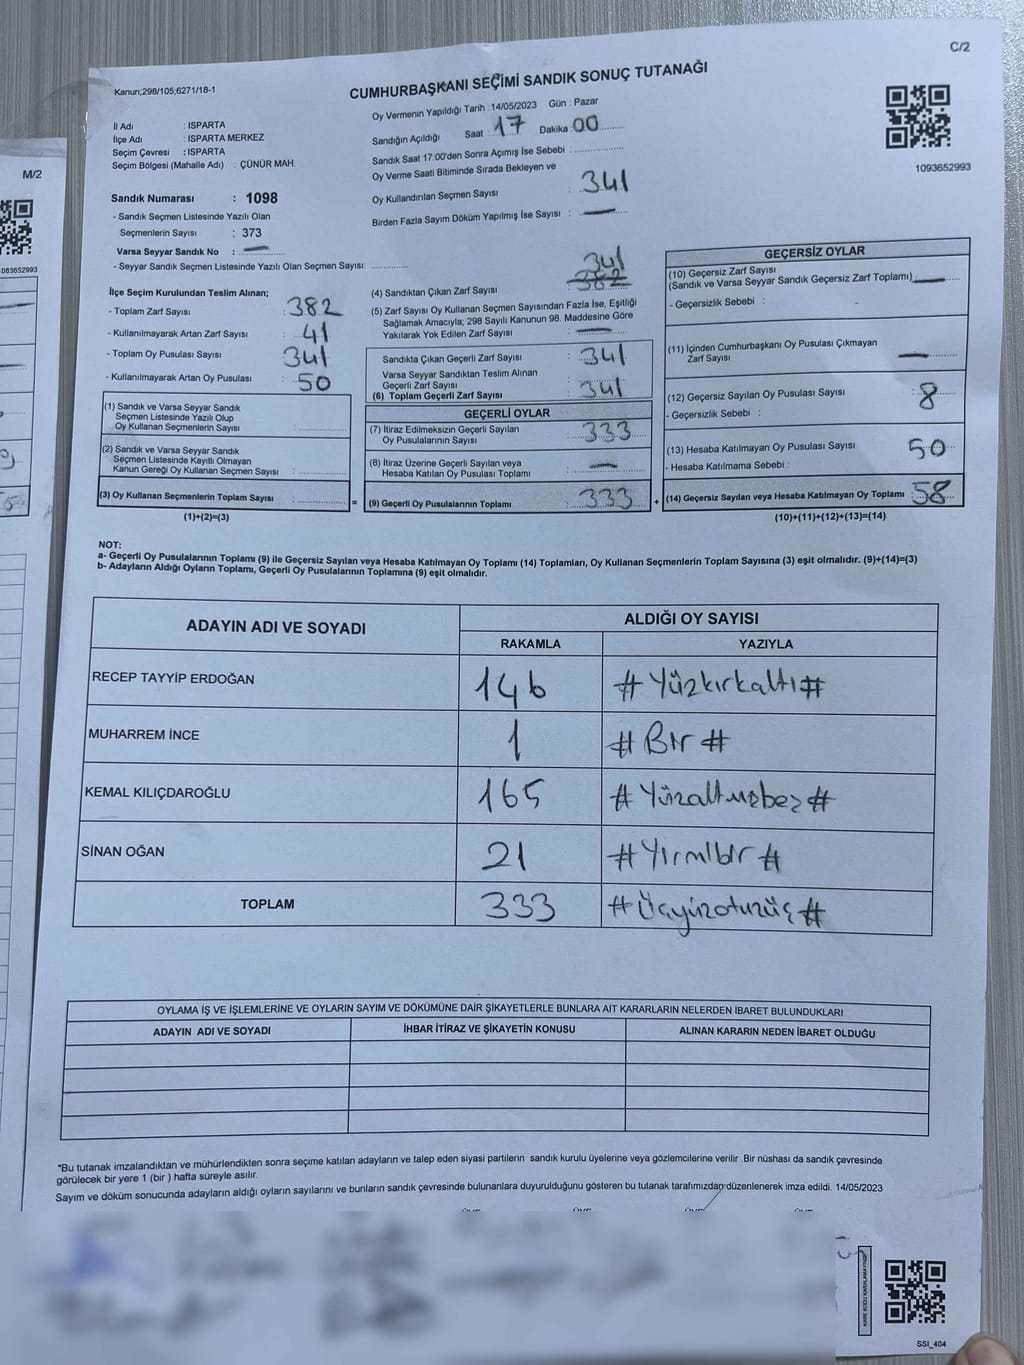 C/2
Kanun;298/105;6271/18-1
CUMHURBAŞKANI SEÇİMİ SANDIK SONUÇ TUTANAĞI
Oy Vermenin Yapıldığı Tarih : 14/05/2023 Gün : Pazar
İl Adı : ISPARTA
İlçe Adı : ISPARTA MERKEZ
Seçim Çevresi : ISPARTA
Seçim Bölgesi (Mahalle Adı) : ÇÜNÜR MAH.
Sandığın Açıldığı Saat : 17 Dakika : 00
Sandık Saat 17:00'den Sonra Açımış İse Sebebi :
Oy Verme Saati Bitiminde Sırada Bekleyen ve
Oy Kullandırılan Seçmen Sayısı : 341
Birden Fazla Sayım Döküm Yapılmış İse Sayısı : —
1093652993
M/2
083652993
Sandık Numarası : 1098
- Sandık Seçmen Listesinde Yazılı Olan
Seçmenlerin Sayısı : 373
Varsa Seyyar Sandık No : —
- Seyyar Sandık Seçmen Listesinde Yazılı Olan Seçmen Sayısı:
İlçe Seçim Kurulundan Teslim Alınan;
- Toplam Zarf Sayısı : 382
- Kullanılmayarak Artan Zarf Sayısı : 41
- Toplam Oy Pusulası Sayısı : 341
- Kullanılmayarak Artan Oy Pusulası : 50
(1) Sandık ve Varsa Seyyar Sandık
Seçmen Listesinde Yazılı Olup
Oy Kullanan Seçmenlerin Sayısı :
(2) Sandık ve Varsa Seyyar Sandık
Seçmen Listesinde Kayıtlı Olmayan
Kanun Gereği Oy Kullanan Seçmen Sayısı :
(3) Oy Kullanan Seçmenlerin Toplam Sayısı :
(1)+(2)=(3)
341
(4) Sandıktan Çıkan Zarf Sayısı : 382
(5) Zarf Sayısı Oy Kullanan Seçmen Sayısından Fazla İse, Eşitliği
Sağlamak Amacıyla; 298 Sayılı Kanunun 98. Maddesine Göre
Yakılarak Yok Edilen Zarf Sayısı : —
Sandıkta Çıkan Geçerli Zarf Sayısı : 341
Varsa Seyyar Sandıktan Teslim Alınan
Geçerli Zarf Sayısı
(6) Toplam Geçerli Zarf Sayısı : 341
GEÇERLİ OYLAR
(7) İtiraz Edilmeksizin Geçerli Sayılan
Oy Pusulalarının Sayısı : 333
(8) İtiraz Üzerine Geçerli Sayılan veya
Hesaba Katılan Oy Pusulası Toplamı : —
= (9) Geçerli Oy Pusulalarının Toplamı : 333 +
GEÇERSİZ OYLAR
(10) Geçersiz Zarf Sayısı
(Sandık ve Varsa Seyyar Sandık Geçersiz Zarf Toplamı) : —
- Geçersizlik Sebebi :
(11) İçinden Cumhurbaşkanı Oy Pusulası Çıkmayan
Zarf Sayısı : —
(12) Geçersiz Sayılan Oy Pusulası Sayısı : 8
- Geçersizlik Sebebi :
(13) Hesaba Katılmayan Oy Pusulası Sayısı : 50
- Hesaba Katılmama Sebebi :
(14) Geçersiz Sayılan veya Hesaba Katılmayan Oy Toplamı : 58
(10)+(11)+(12)+(13)=(14)
NOT:
a- Geçerli Oy Pusulalarının Toplamı (9) ile Geçersiz Sayılan veya Hesaba Katılmayan Oy Toplamı (14) Toplamları, Oy Kullanan Seçmenlerin Toplam Sayısına (3) eşit olmalıdır. (9)+(14)=(3)
b- Adayların Aldığı Oyların Toplamı, Geçerli Oy Pusulalarının Toplamına (9) eşit olmalıdır.
ADAYIN ADI VE SOYADI ALDIĞI OY SAYISI
RAKAMLA YAZIYLA
RECEP TAYYİP ERDOĞAN 146 # Yüzkırkaltı #
MUHARREM İNCE 1 # Bir #
KEMAL KILIÇDAROĞLU 165 # Yüzaltmışbeş #
SİNAN OĞAN 21 # Yirmibir #
TOPLAM 333 # Üçyüzotuzüç #
OYLAMA İŞ VE İŞLEMLERİNE VE OYLARIN SAYIM VE DÖKÜMÜNE DAİR ŞİKAYETLERLE BUNLARA AİT KARARLARIN NELERDEN İBARET BULUNDUKLARI
ADAYIN ADI VE SOYADI İHBAR İTİRAZ VE ŞİKAYETİN KONUSU ALINAN KARARIN NEDEN İBARET OLDUĞU
*Bu tutanak imzalandıktan ve mühürlendikten sonra seçime katılan adayların ve talep eden siyasi partilerin sandık kurulu üyelerine veya gözlemcilerine verilir .Bir nüshası da sandık çevresinde
görülecek bir yere 1 (bir ) hafta süreyle asılır.
Sayım ve döküm sonucunda adayların aldığı oyların sayılarını ve bunların sandık çevresinde bulunanlara duyurulduğunu gösteren bu tutanak tarafımızdan düzenlenerek imza edildi. 14/05/2023
KARE KODU KARALAMAYINIZ!
SSI_404